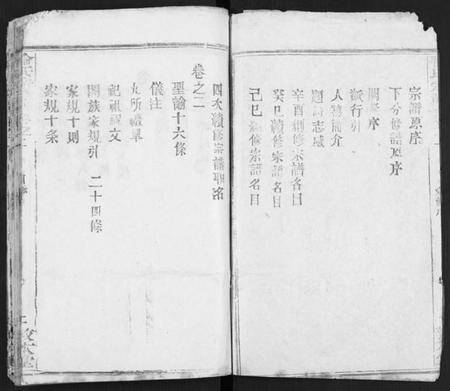 宗譜原序
下分修譜原序
派行引
人物簡介
題詞志感
辛酉創修宗譜名目
癸巳續修宗譜名目
己巳續修宗譜名目
四次續修宗譜職名
卷之二
聖諭十六條
儀注
九所職單
祀祖禮文
闔族家規引 二十四條
家規十則
家規十条